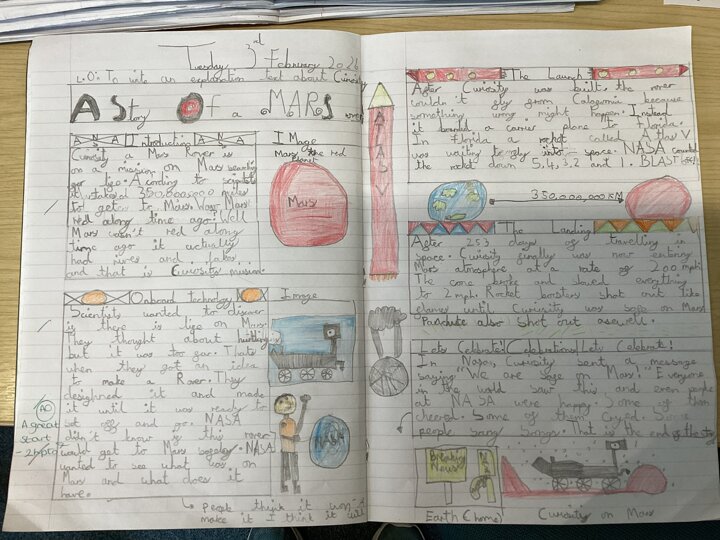 Tuesday, 3rd February 2026
L.O: To write an explanation text about Curiosity
A Story Of a MARS rover
NASA Introduction NASA
Curiosity a Mars Rover is
on a mission on Mars searching
for life. According to scientists
it takes 350,000,000 miles
to get to Mars. Was Mars
red along time ago? Well
Mars wasn't red along
time ago it actually
had rives and lakes
and that is Curiositys mission.
IMage
Mars the red
planet
Mars
Onboard technology
Scientists wanted to discover
is there is life on Mars.
They thought about
but it was too far. Thats
when they got an idea
to make a Rover. They
desighned it and made
it until it was ready to
set off and go. NASA
didn't know if this rover
would get to Mars safely. NASA
wanted to see what was on
Mars and what does it
have.
people think it won't
make it I think it will
Image
NASA
AC
A great
start
ATLAS V
The Launch
After Curiosity was built, the rover
couldn't fly from Calafornia because
something wrong might happen. Instead
it boarded a carrier plane to Florida.
In Florida a rocket called Atlas V
was waiting to fly into space. NASA counted
the rocket down 5,4,3,2 and 1. BLAST
350,000,000 KM
The Landing
After 253 days of travelling in
space. Curiosity finally was now entering
Mars atmosphere at a rate of 200 mph.
The come broke and slowed everything
to 2 mph. Rocket boosters shot out like
flames until Curiosity was safe on Mars.
Parachute also Shot out aswell.
Lets Celebrate! Celebrations! Lets Celebrate!
In Nasa, Curiosity sent a message
saying "We are Safe on Mars!" Everyone
in the world saw this and even people
at NASA were happy. Some of them
cheered. Some of them Cryed. Some
people sang Songs. That is the end of the story
Breaking
News
Earth (home)
Curiosity on Mars